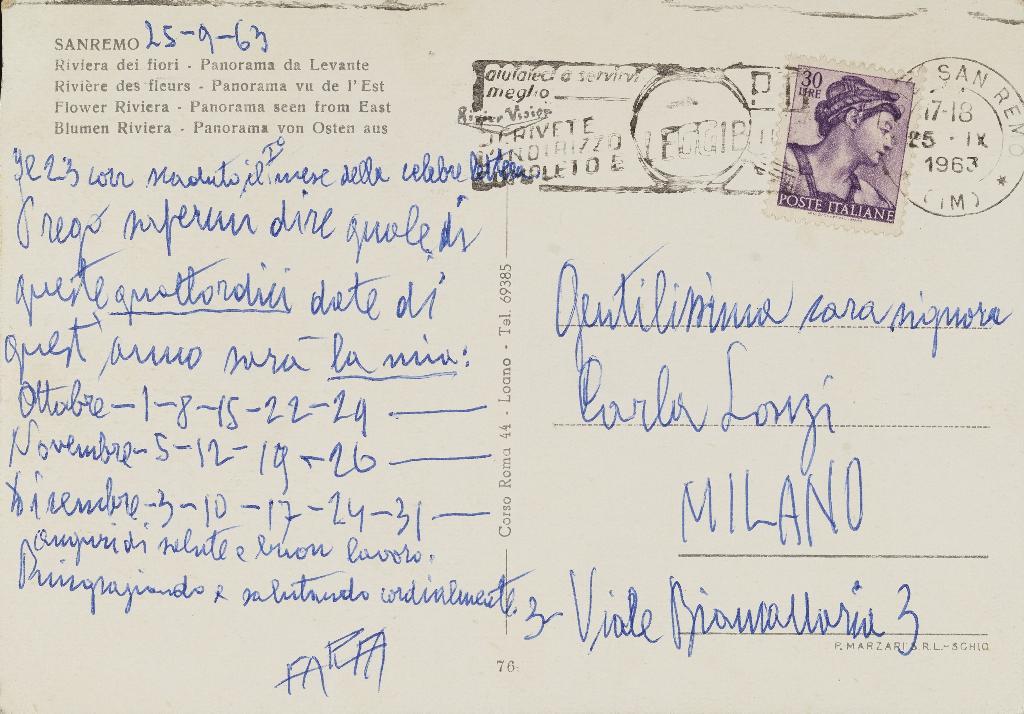 SANREMO 25-9-63
Riviera dei fiori - Panorama da Levante
Rivière des fleurs - Panorama vu de l'Est
Flower Riviera - Panorama seen from East
Blumen Riviera - Panorama von Osten aus
Il 23 corr scaduto, il Iº mese della celebre lettera
Prego sapermi dire quale di
queste quattordici date di
quest'anno sarà la mia:
Ottobre - 1 - 8 - 15 - 22 - 29
Novembre - 5 - 12 - 19 - 26
Dicembre - 3 - 10 - 17 - 24 - 31
auguri di salute e buon lavoro.
Ringraziando e salutando cordialmente.
FARFA
Corso Roma 44 - Loano - Tel. 69385
76
aiutateci a servirvi
meglio
SCRIVETE
INDIRIZZO
COMPLETO E
LEGGIBILE
30
LIRE
POSTE ITALIANE
SAN REMO
17-18
25 - IX
1963
(IM)
Gentilissima cara signora
Carla Lonzi
MILANO
3 - Viale Biancamaria 3
P. MARZARI S.R.L. - SCHIO